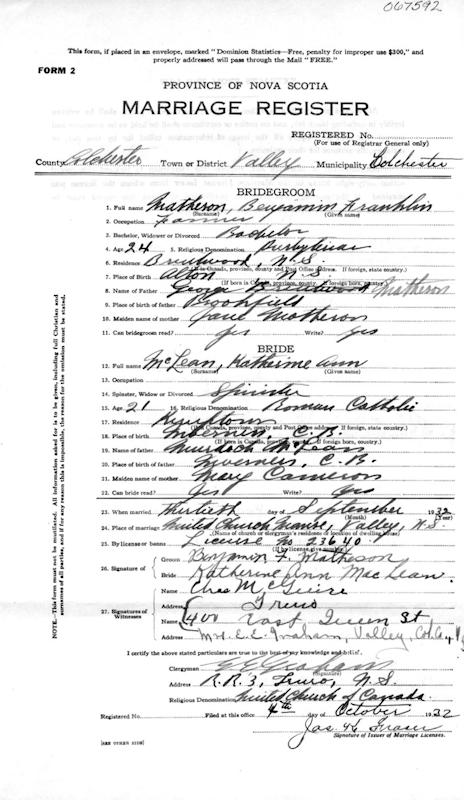 067592
This form, if placed in an envelope, marked "Dominion Statistics—Free, penalty for improper use $300," and
properly addressed will pass through the Mail "FREE."
FORM 2
PROVINCE OF NOVA SCOTIA
MARRIAGE REGISTER
REGISTERED No.
(For use of Registrar General only)
County Colchester Town or District Valley Municipality Colchester
BRIDEGROOM
1. Full name Matheson, Benjamin Franklin
(Surname) (Given name)
2. Occupation Farmer
3. Bachelor, Widower or Divorced Bachelor
4. Age 24 5. Religious Denomination
6. Residence Brentwood, N.S.
7. Place of Birth Alton N.S.
8. Name of Father George Matheson
9. Place of birth of father Brookfield
10. Maiden name of mother Jane Matheson
11. Can bridegroom read? yes Write? yes
BRIDE
12. Full name McLean, Katherine Ann
(Surname) (Given name)
13. Occupation
14. Spinster, Widow or Divorced Spinster
15. Age 21 16. Religious Denomination Roman Catholic
17. Residence
18. Place of birth C.B.
19. Name of father Murdoch McLean
20. Place of birth of father Inverness, C.B.
21. Maiden name of mother Mary Cameron
22. Can bride read? Yes Write? Yes
23. When married Thirtieth day of September 1932
(Month) (Year)
24. Place of marriage United Church Manse, Valley, N.S.
(Name of church or clergyman's residence or location of dwelling house)
25. By license or banns License No 23640
(If by license give number)
26. Signature of
Groom Benjamin F. Matheson
Bride Katherine Ann MacLean
27. Signatures of Witnesses
Name Chas McGuire
Address Truro
Name 400 East Queen St
Address Mrs. E.E. Graham, Valley, Col. Co., N.S.
I certify the above stated particulars are true to the best of my knowledge and belief.
Clergyman E E Graham
(Signature)
Address R.R. 3, Truro, N.S.
Religious Denomination United Church of Canada
Registered No. Filed at this office 4th day of October 1932
Jas H Fraser
Signature of Issuer of Marriage Licenses.
[SEE OTHER SIDE]
NOTE.—This form must not be mutilated. All information asked for, is to be given, including full Christian and
surnames of all parties, and if for any reason this is impossible, the reason for the omission must be stated.